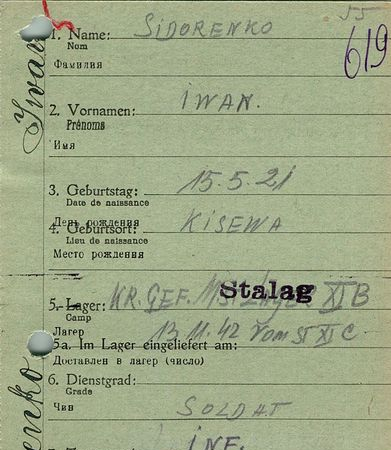 55
619
1. Name: SIDORENKO
Nom
Фамилия
Iwan
2. Vornamen: IWAN.
Prénoms
Имя
3. Geburtstag: 15.5.21
Date de naissance
День рождения
4. Geburtsort: KISEWA
Lieu de naissance
Место рождения
5. Lager: KR. GEF. Stalag XI B
Camp
Лагер 13 11.42 Vom ST XI C.
5a. Im Lager eingeliefert am:
Доставлен в лагер (число)
6. Dienstgrad:
Grade
Чин SOLDAT
enko
INF.